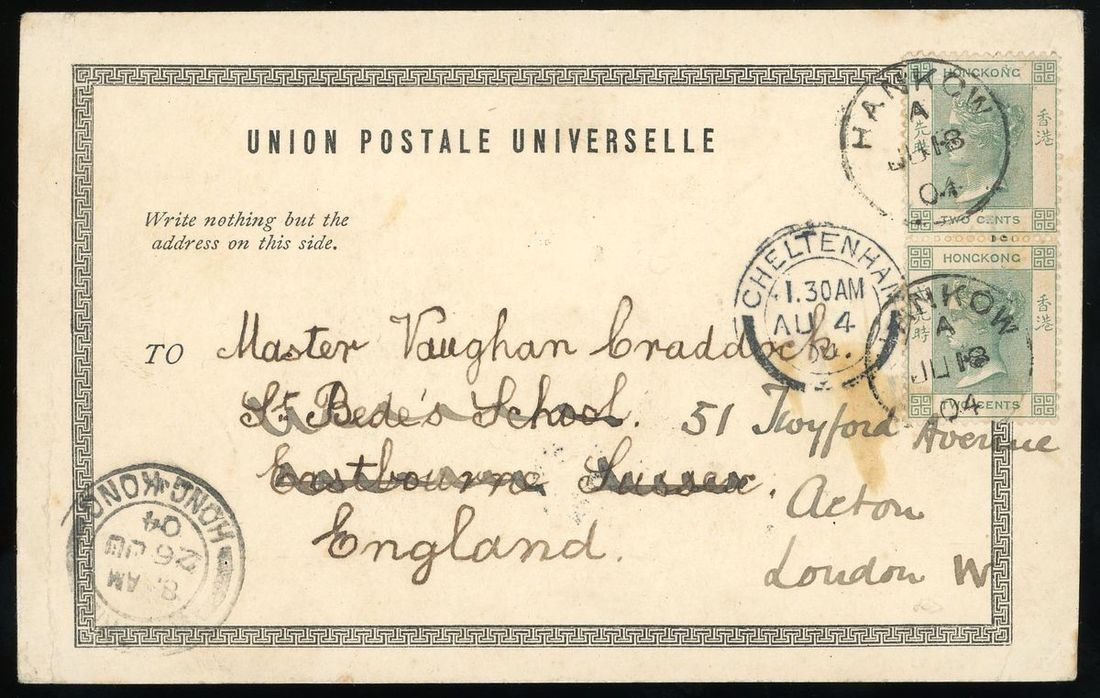 UNION POSTALE UNIVERSELLE
Write nothing but the
address on this side.
TO Master Vaughan Craddock.
St Bede's School.
Eastbourne Sussex.
England.
51 Twyford Avenue
Acton
London W
HONGKONG
香港
TWO CENTS
HONGKONG
香港
CENTS
HANKOW
A
JU 18
04
HANKOW
A
JU 18
04
CHELTENHAM
1.30AM
AU 4
04
HONG KONG
8 AM
26 JU
04